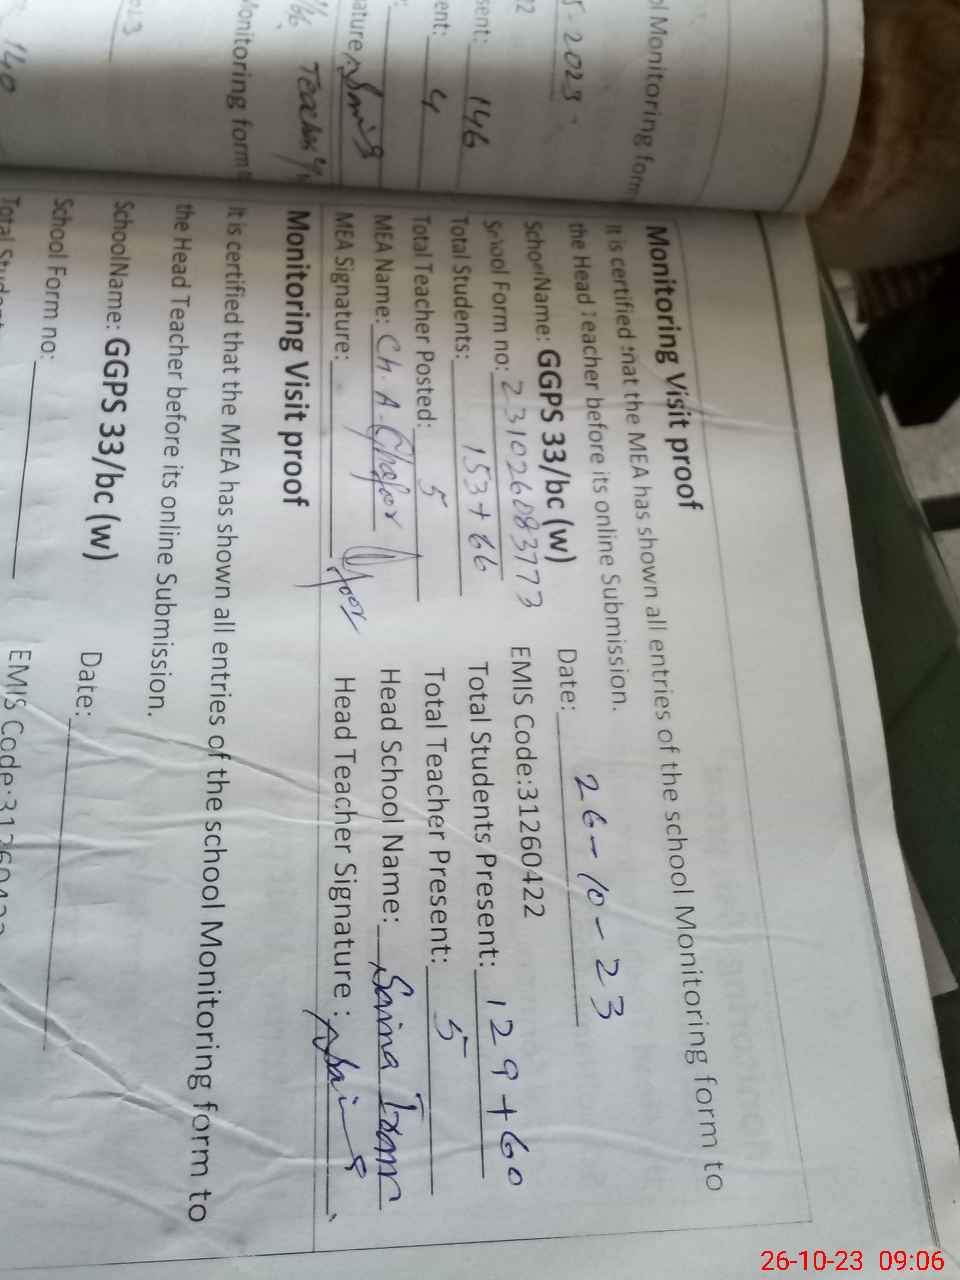 ol Monitoring form
5-2023
sent: 146
ent: 4
ature
Teacher
Monitoring form
140
Monitoring Visit proof
It is certified that the MEA has shown all entries of the school Monitoring form to
the Head Teacher before its online Submission.
Date: 26-10-23
School Name: GGPS 33/bc (w)
EMIS Code:31260422
School Form no: 231026083773
Total Students: 153+66
Total Students Present: 129+60
Total Teacher Posted: 5
Total Teacher Present: 5
MEA Name: Ch. A. Ghafoor
Head School Name:
MEA Signature:
Head Teacher Signature :
Monitoring Visit proof
It is certified that the MEA has shown all entries of the school Monitoring form to
the Head Teacher before its online Submission.
SchoolName: GGPS 33/bc (w)
Date:
School Form no:
EMIS Code:31260422
Total Student
26-10-23 09:06